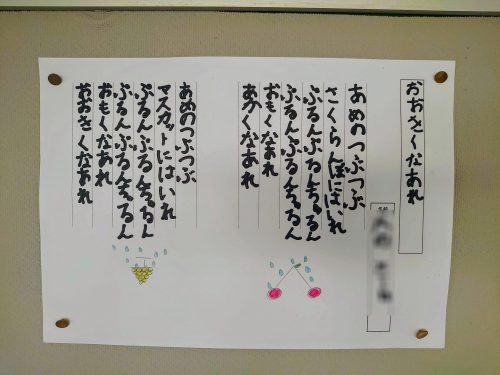 おおきくなあれ
あめのつぶつぶ
さくらんぼにはいれ
ぷるんぷるんちゅるん
ぷるんぷるんちゅるん
おもくなあれ
あかくなあれ
あめのつぶつぶ
マスカットにはいれ
ぷるんぷるんちゅるん
ぷるんぷるんちゅるん
おもくなあれ
おおきくなあれ